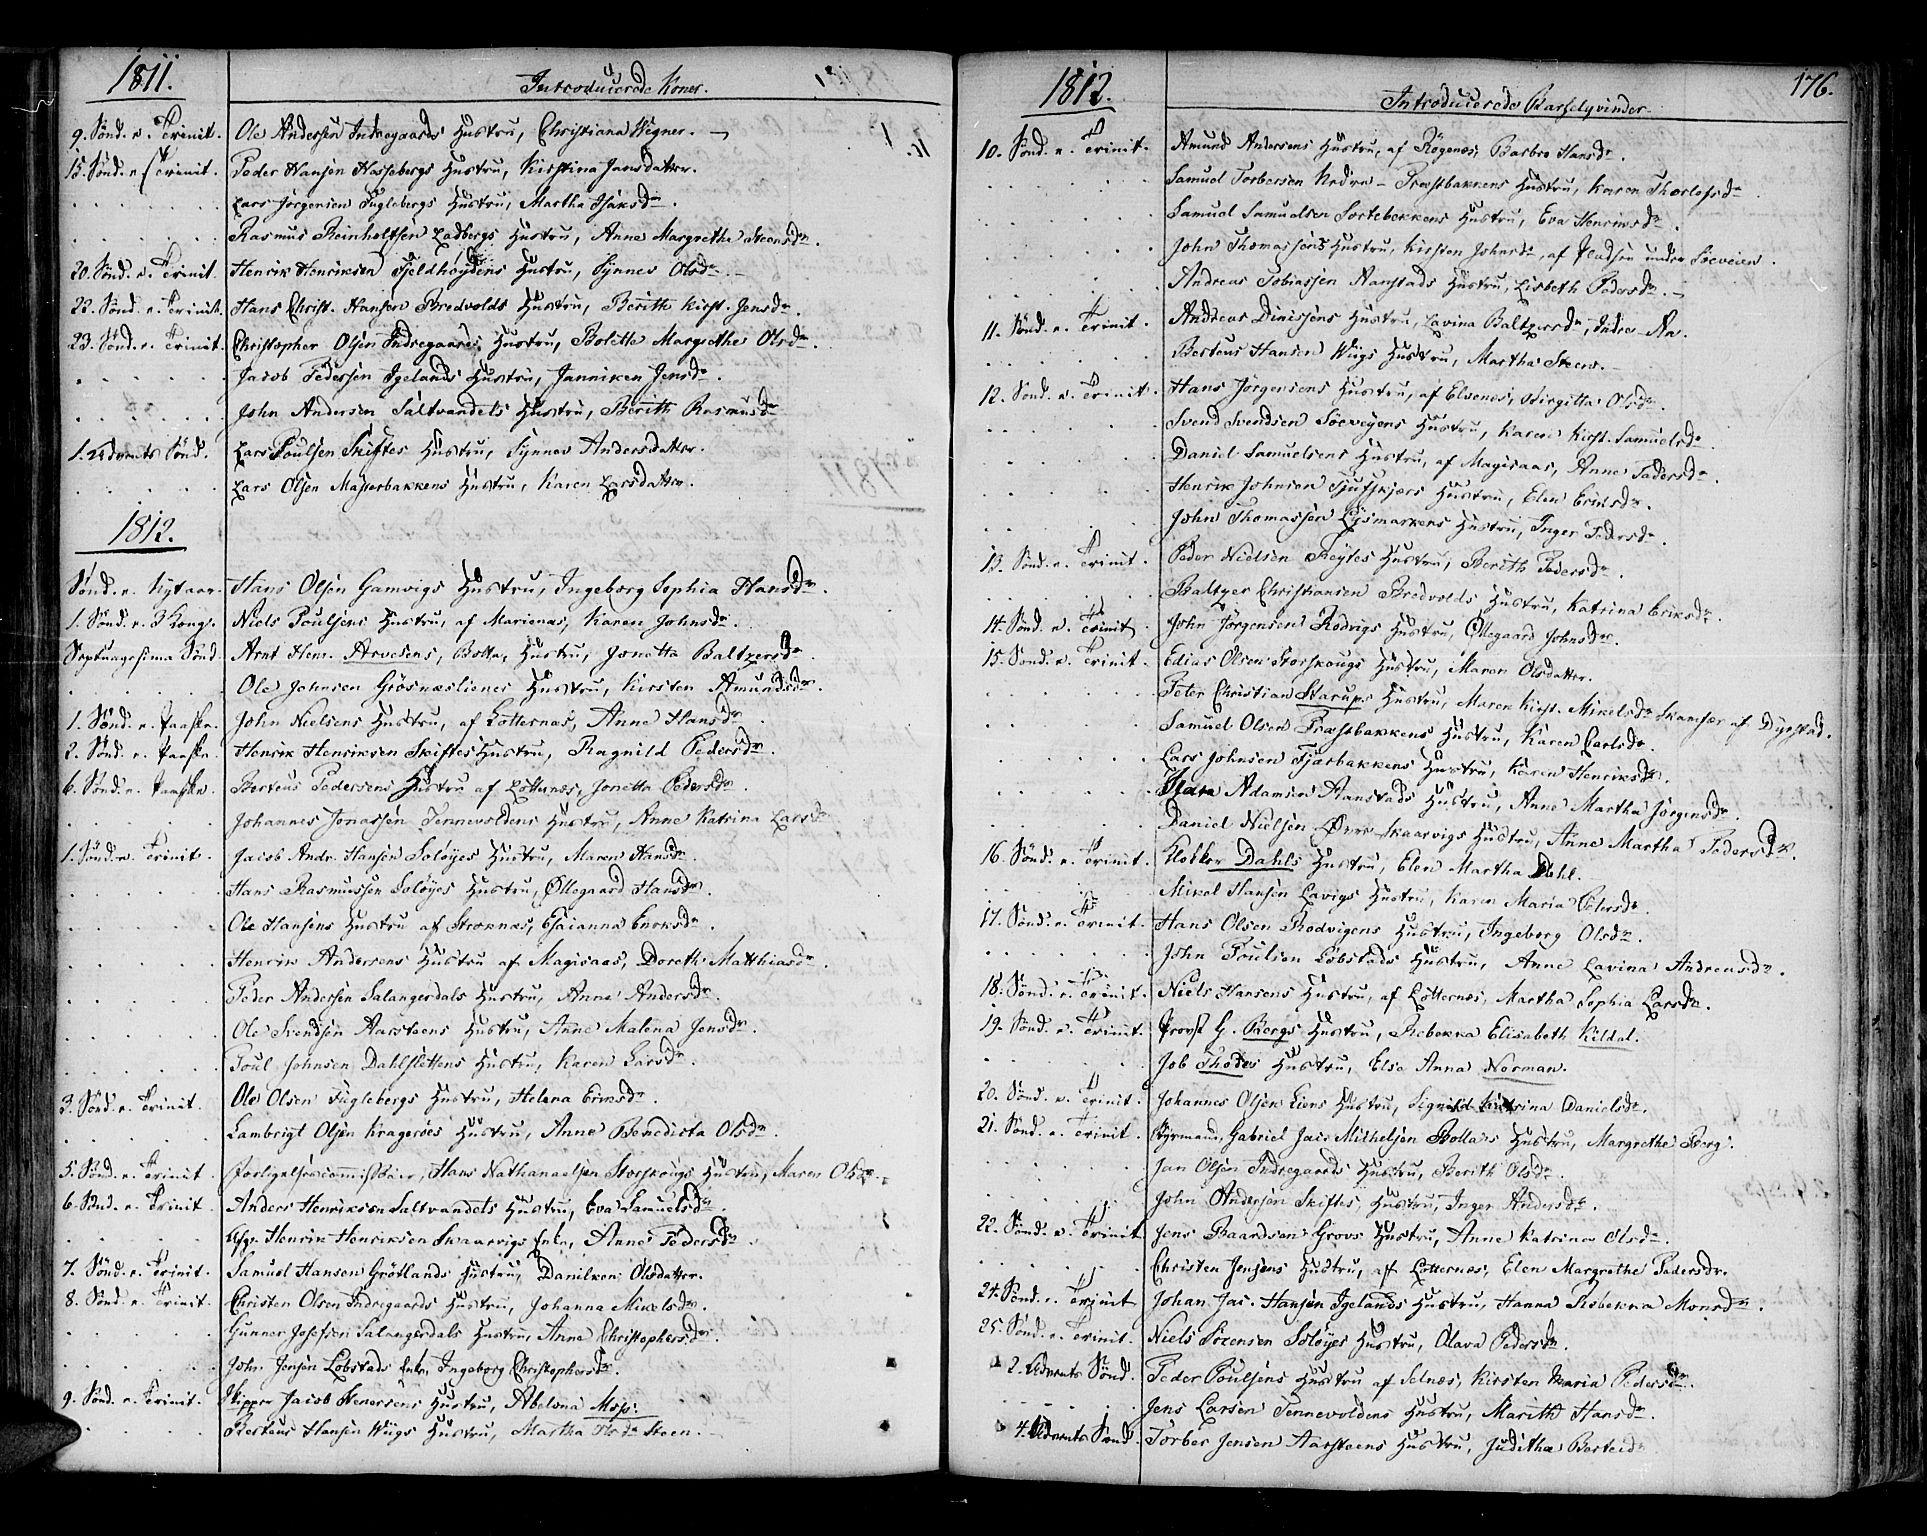 1811.
Introducerede Koner.
9. Sönd. e. Trinit. Ole Andersen Indregaards Hustru, Christiana Wegner.
15. Sönd. e. Trinit. Peder Hansen Hassebergs Hustru, Kirstina Jansdatter.
Lars Jörgensen Fuglebergs Hustru, Martha Isaksdr.
Rasmus Reinholtsen Ladbergs Hustru, Anne Margretha Steensdr.
20. Sönd. e. Trinit. Henrik Henriksen Fjeldhöydens Hustru, Synnev Olsdr.
22. Sönd. e. Trinit. Hans Christ. Hansen Bredvolds Hustru, Berith Kirst. Jensdr.
23. Sönd. e. Trinit. Christopher Olsen Indregaards Hustru, Bolette Margrethe Olsdr.
Jacob Pedersen Igelands Hustru, Janniken Jensdr.
John Andersen Saltvandets Hustru, Berith Rasmusdr.
1. Advents Sönd. Lars Poulsen Skiftes Hustru, Synnev Andersdatter.
Lars Olsen Masterbakkens Hustru, Karen Larsdatter.
1812.
Sönd. e. Nytaar. Hans Olsen Gamvigs Hustru, Ingeborg Sophia Hansdr.
1. Sönd. e. 3 Kong. Niels Poulsens Hustru, af Marienæs, Karen Johnsdr.
Septuagesima Sönd. Arnt Henr. Arvesens, Bolla, Hustru, Jonetta Baltzersdr.
Ole Johnsen Grösnæslienes Hustru, Kirsten Amundsdr.
1. Sönd. e. Paaske. John Nielsens Hustru, af Lotternæs, Anne Hansdr.
2. Sönd. e. Paaske. Henrik Henriksen Skiftes Hustru, Ragnild Pedersdr.
6. Sönd. e. Paaske. Berteus Pedersens Hustru af Lötternæs, Jonetta Pedersdr.
Johannes Jonassen Tennevoldens Hustru, Anne Katrina Larsdr.
1. Sönd. e. Trinit. Jacob Andr. Hansen Solöyes Hustru, Maren Hansdr.
Hans Rasmussen Solöyes Hustru, Öllegaard Hansdr.
Ole Hansens Hustru af Stroknæs, Esaianna Enoksdr.
Henrik Andersens Hustru af Magisaas, Doreth. Matthiasdr.
Peder Andersen Salangerdals Hustru, Anne Andersdr.
Ole Svendsen Aarsteens Hustru, Anne Malena Jensdr.
Poul Johnsen Dahlslettens Hustru, Karen Larsdr.
3. Sönd. e. Trinit. Ole Olsen Fuglebergs Hustru, Helena Eriksdr.
Lambrigt Olsen Krageröes Hustru, Anne Benedicta Olsdr.
5. Sönd. e. Trinit. Forligelsescommissair, Hans Nathanaelsen Storskougs Hustru, Maren Olsdr.
6. Sönd. e. Trinit. Anders Henriksen Saltvandets Hustru, Eva Samuelsdr.
Afg. Henrik Henriksen Skaarvigs Enke, Anne Pedersdr.
7. Sönd. e. Trinit. Samuel Hansen Grötlands Hustru, Danilken Olsdatter.
8. Sönd. e. Trinit. Christen Olsen Indregaards Hustru, Johanna Mikelsdr.
Gunner Josefsen Salangerdals Hustru, Anne Christophersdr.
John Jensen Lobstads Enke, Ingeborg Christophersdr.
9. Sönd. e. Trinit. Skipper Jacob Stenersens Hustru, Abelona Moss.
Berteus Hansen Wiigs Hustru, Martha Steen.
1812.
Introducerede Barselqvinder.
176.
10. Sönd. e. Trinit. Amund Andersens Hustru, af Rögenæs, Barbro Hansdr.
Samuel Torbersen Nedre-Præstbakkens Hustru, Karen Thorlefsdr.
Samuel Samuelsen Sortebekkens Hustru, Eva Henriksdr.
John Thomassens Hustru, Kirsten Johnsdr., af Pladsen under Söeveien.
Andreas Tobiassen Aanstads Hustru, Lisbeth Pedersdr.
11. Sönd. e. Trinit. Andreas Dinissens Hustru, Lavina Baltzersdr., Indre-An.
Berteus Hansen Wiigs Hustru, Martha Steen.
12. Sönd. e. Trinit. Hans Jörgensens Hustru, af Elvenes, Birgitta Olsdr.
Svend Svendsen Söeveyens Hustru, Karen Kirst. Samuelsdr.
Daniel Samuelsens Hustru, af Magisaas, Anne Pedersdr.
Henrik Johnsen Tjufskjærs Hustru, Elen Eriksdr.
John Thomassen Lysmarkens Hustru, Inger Pedersdr.
13. Sönd. e. Trinit. Peder Nielsen Röytes Hustru, Berith Pedersdr.
Baltzer Christiansen Bredvolds Hustru, Katrina Eriksdr.
14. Sönd. e. Trinit. John Jörgensen Rodvigs Hustru, Öllegaard Johnsdr.
15. Sönd. e. Trinit. Edias Olsen Storskougs Hustru, Maren Olsdatter.
Peter Christian Starups Hustru, Maren Kirst. Mikelsdr. Skamfær af Dyrstad.
Samuel Olsen Præstbakkens Hustru, Karen Carlsdr.
Lars Johnsen Fjærbakkens Hustru, Karen Henriksdr.
Adamsen Aanstads Hustru, Anne Martha Jörgensdr.
Daniel Nielsen Övre Skaarvigs Hustru, Anne Martha Pedersdr.
16. Sönd. e. Trinit. Klokker Dahls Hustru, Elen Martha Dahl.
Mikel Hansen Lavigs Hustru, Karen Maria Petersdr.
17. Sönd. e. Trinit. Hans Olsen Rodvigens Hustru, Ingeborg Olsdr.
John Poulsen Lobstads Hustru, Anne Lavina Andreasdr.
18. Sönd. e. Trinit. Niels Hansens Hustru, af Lötternæs, Martha Sophia Larsdr.
19. Sönd. e. Trinit. Provst G. Bergs Hustru, Rebekka Elisabeth Kildal.
Job Thodes Hustru, Else Anna Norman.
20. Sönd. e. Trinit. Johannes Olsen Liens Hustru, Signild Katrina Danielsdr.
21. Sönd. e. Trinit. Styrmand, Gabriel Jac. Mikkelsen Bollæs Hustru, Margrethe Berg.
Jan Olsen Indregaards Hustru, Berith Olsdr.
John Andersen Skiftes, Hustru, Inger Andersdr.
22. Sönd. e. Trinit. Jens Baardsen Grovs Hustru, Anne Katrina Olsdr.
Christen Jensens Hustru, af Lötternæs, Elen Margrethe Pedersdr.
24. Sönd. e. Trinit. Johan Jac. Hansen Igelands Hustru, Hanna Rebekka Monsdr.
25. Sönd. e. Trinit. Niels Sörensen Solöyes Hustru, Olava Pedersdr.
2. Advents Sönd. Peder Poulsens Hustru af Selnæs, Kirsten Maria Pedersdr.
Jens Larsen Tennevoldens Hustru, Marith Hansdr.
4. Advents Sönd. Torber Jensen Aarsteens Hustru, Juditha Berteidr.